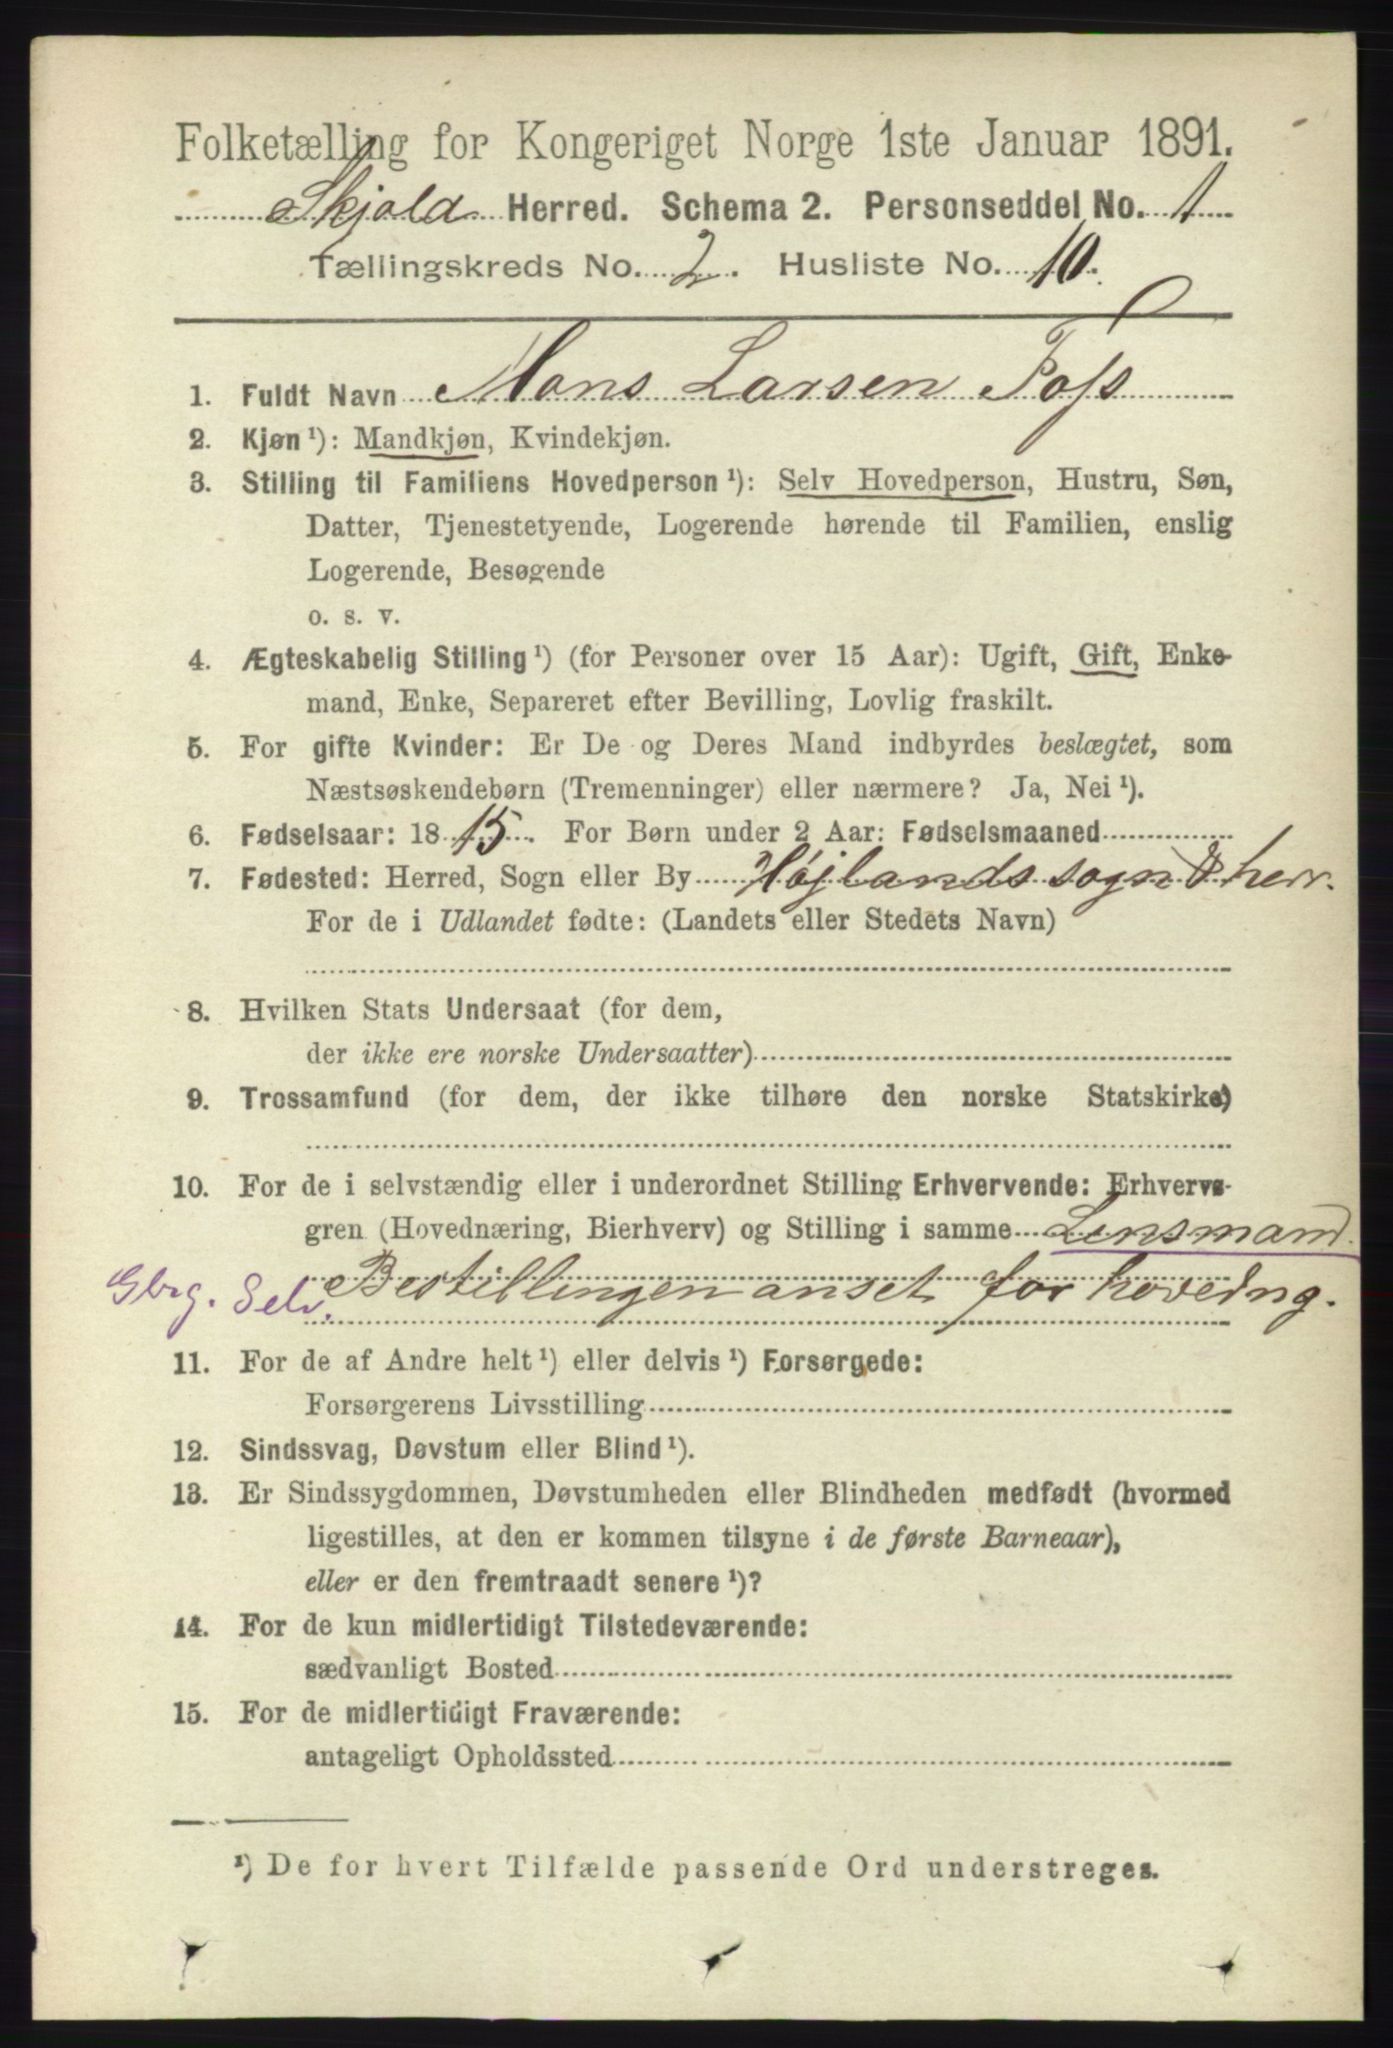 Folketælling for Kongeriget Norge 1ste Januar 1891.
Skjold Herred. Schema 2. Personseddel No. 1
Tællingskreds No. 2. Husliste No. 10.
1. Fuldt Navn Mons Larsen Foss
2. Kjøn ¹): Mandkjøn, Kvindekjøn.
3. Stilling til Familiens Hovedperson ¹): Selv Hovedperson, Hustru, Søn,
Datter, Tjenestetyende, Logerende hørende til Familien, enslig
Logerende, Besøgende
o. s. v.
4. Ægteskabelig Stilling ¹) (for Personer over 15 Aar): Ugift, Gift, Enke-
mand, Enke, Separeret efter Bevilling, Lovlig fraskilt.
5. For gifte Kvinder: Er De og Deres Mand indbyrdes beslægtet, som
Næstsøskendebørn (Tremenninger) eller nærmere? Ja, Nei ¹).
6. Fødselsaar: 1815. For Børn under 2 Aar: Fødselsmaaned
7. Fødested: Herred, Sogn eller By Højlands sogn & herr.
For de i Udlandet fødte: (Landets eller Stedets Navn)
8. Hvilken Stats Undersaat (for dem,
der ikke ere norske Undersaatter)
9. Trossamfund (for dem, der ikke tilhøre den norske Statskirke)
10. For de i selvstændig eller i underordnet Stilling Erhvervende: Erhvervs-
gren (Hovednæring, Bierhverv) og Stilling i samme Lensmand.
Bestillingen anset for hovedng.
Gbrg. Selv.
11. For de af Andre helt ¹) eller delvis ¹) Forsørgede:
Forsørgerens Livsstilling
12. Sindssvag, Døvstum eller Blind ¹).
13. Er Sindssygdommen, Døvstumheden eller Blindheden medfødt (hvormed
ligestilles, at den er kommen tilsyne i de første Barneaar),
eller er den fremtraadt senere ¹)?
14. For de kun midlertidigt Tilstedeværende:
sædvanligt Bosted
15. For de midlertidigt Fraværende:
antageligt Opholdssted
¹) De for hvert Tilfælde passende Ord understreges.